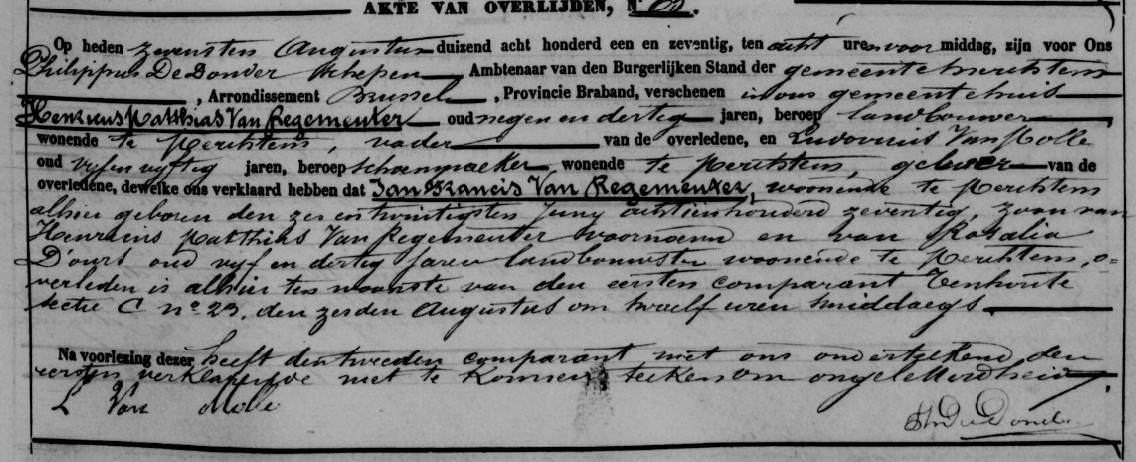 AKTE VAN OVERLIJDEN, N.
Op heden zevensten Augustus duizend acht honderd een en zeventig, ten acht uren voor middag, zijn voor Ons
Philippus De Donder schepen, Ambtenaar van den Burgerlijken Stand der gemeente Merchtem
, Arrondissement Brussel, Provincie Braband, verschenen in ons gemeentehuis
Henricus Matthias Van Regementer oud negen en dertig jaren, beroep landbouwer
wonende te Merchtem, vader van de overledene, en Ludovicus Van Molle
oud vijfen vyftig jaren, beroep schoenmaeker, wonende te Merchtem, gebuer van de
overledene, dewelke ons verklaard hebben dat Jan Francis Van Regementer, woonende te Merchtem
alhier geboren den zes en twintigsten Juny achttienhonderd zeventig, zoon van
Henricus Matthias Van Regementer voornoemd en van Rosalia
oud vyf en dertig jaren landbouwster woonende te Merchtem, o-
verleden is alhier ten woonste van den eersten comparant Eenhoute
sectie C n° 23, den zesden Augustus om twaelf uren middaegs.
Na voorlezing dezer heeft den tweeden comparant met ons onderteekend, den
eersten verklarende niet te konnen teekenen om ongeletterdheid.
L Van Molle
Ph De Donder